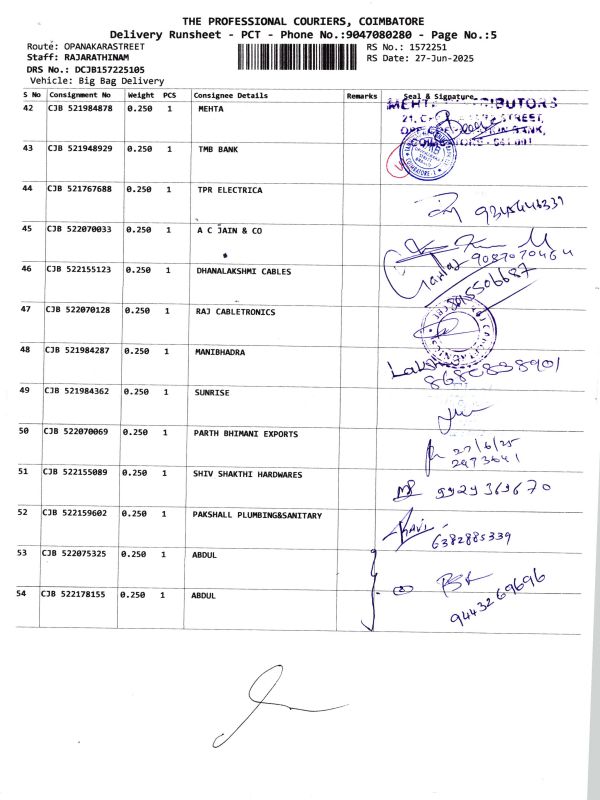 THE PROFESSIONAL COURIERS, COIMBATORE
Delivery Runsheet - PCT - Phone No.:9047080280 - Page No.:5
Route: OPANAKARASTREET
RS No.: 1572251
Staff: RAJARATHINAM
RS Date: 27-Jun-2025
DRS No.: DCJB157225105
Vehicle: Big Bag Delivery
S No Consignment No Weight PCS Consignee Details Remarks Seal & Signature
42 CJB 521984878 0.250 1 MEHTA
43 CJB 521948929 0.250 1 TMB BANK
44 CJB 521767688 0.250 1 TPR ELECTRICA
45 CJB 522070033 0.250 1 A C JAIN & CO
9087070464
46 CJB 522155123 0.250 1 DHANALAKSHMI CABLES
47 CJB 522070128 0.250 1 RAJ CABLETRONICS
48 CJB 521984287 0.250 1 MANIBHADRA
49 CJB 521984362 0.250 1 SUNRISE
50 CJB 522070069 0.250 1 PARTH BHIMANI EXPORTS
27/6/25
2473641
51 CJB 522155089 0.250 1 SHIV SHAKTHI HARDWARES
9929369670
52 CJB 522159602 0.250 1 PAKSHALL PLUMBING&SANITARY
RAVI
6382885339
53 CJB 522075325 0.250 1 ABDUL
54 CJB 522178155 0.250 1 ABDUL
9443269696